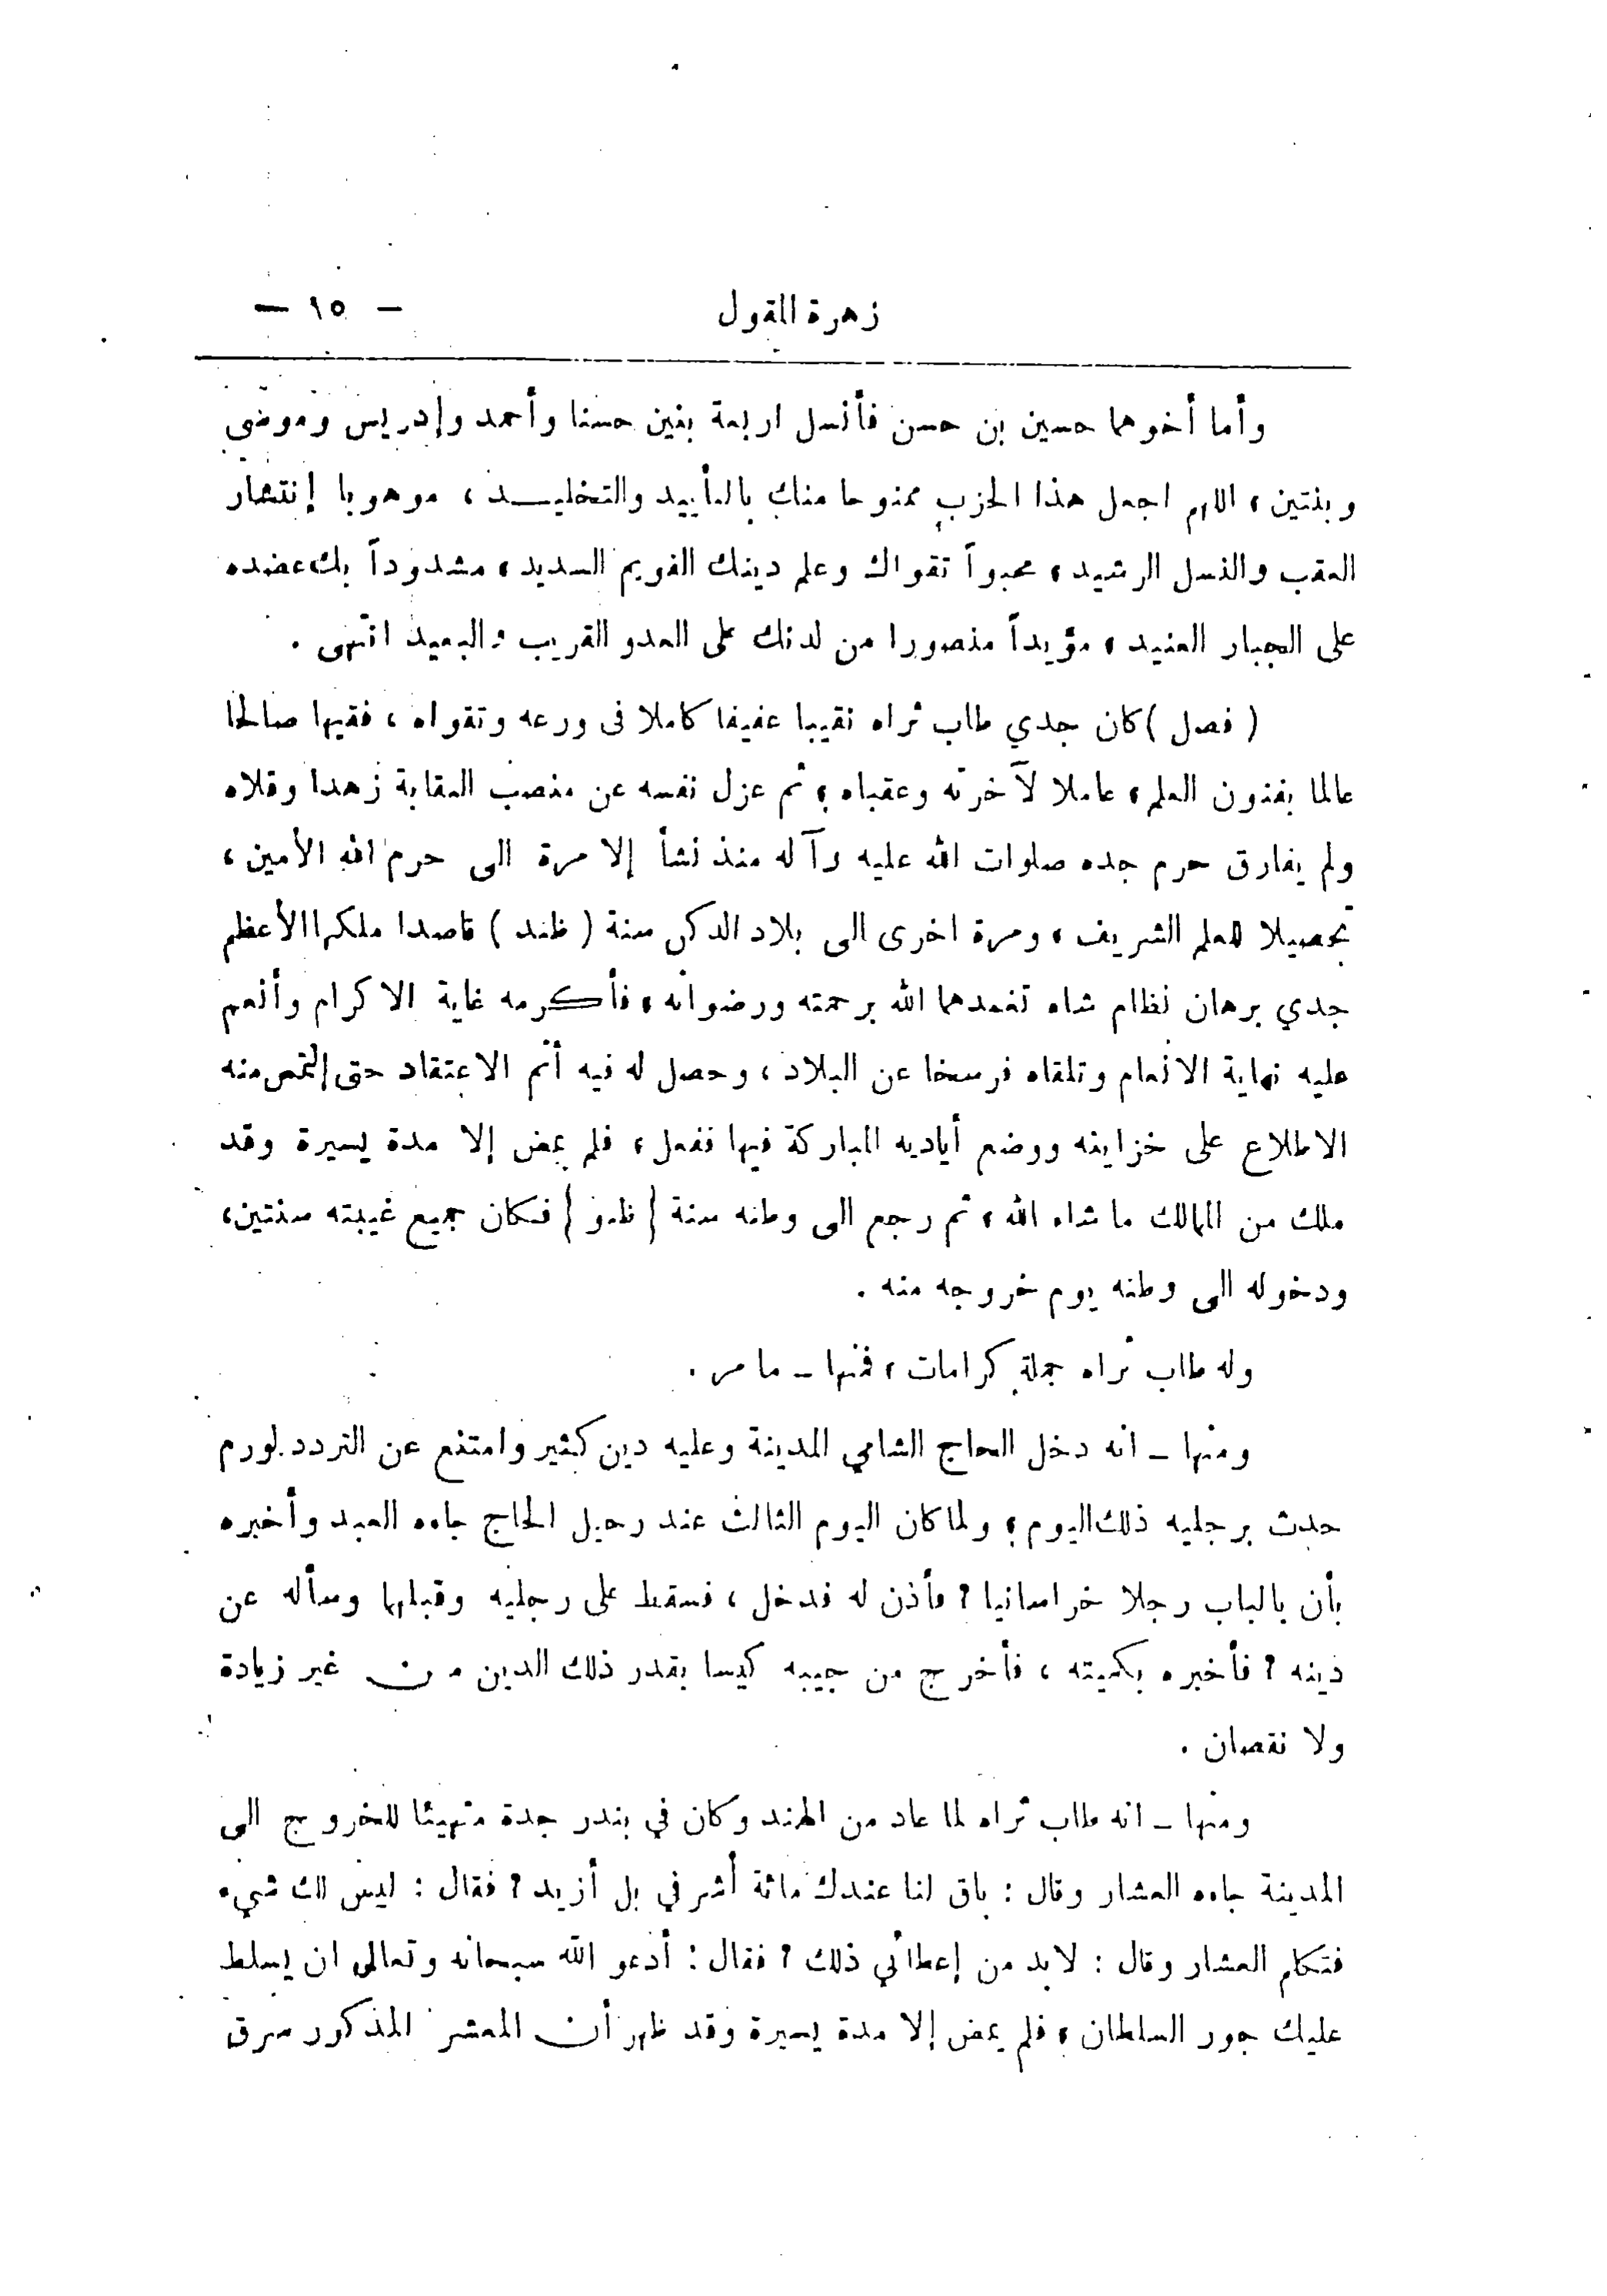 زهرة المقول
— ١٥ —
وأما أخوهما حسين بن حسن فأنسل اربعة بنين حسنا وأحمد وإدريس وموسى
وبنتين، اللهم اجعل هذا الحزب ممنوحا منك بالتأييد والتخليـــد، موهوبا إنتشار
العقب والنسل الرشيد، محبواً تقواك وعلم دينك القويم السديد، مشدوداً بك عضده
على الجبار العنيد، مؤيداً منصورا من لدنك على العدو القريب والبعيد انتهى .
( فصل ) كان جدي طاب ثراه نقيبا عفيفا كاملا فى ورعه وتقواه، فقيها صالحا
عالما بفنون العلم، عاملا لآخرته وعقباه؛ ثم عزل نفسه عن منصب النقابة زهدا وقلاه
ولم يفارق حرم جده صلوات الله عليه وآله منذ نشأ إلا مرة الى حرم الله الأمين،
تحصيلا للعلم الشريف، ومرة اخرى الى بلاد الدكن سنة ( ظند ) قاصدا ملكها الأعظم
جدي برهان نظام شاه تغمدهما الله برحمته ورضوانه، فأكرمه غاية الاكرام وأنعم
عليه نهاية الانعام وتلقاه فرسخا عن البلاد، وحصل له فيه أتم الاعتقاد حتى إلتمس منه
الاطلاع على خزاينه ووضع أياديه المباركة فيها ففعل، فلم يمض إلا مدة يسيرة وقد
ملك من الممالك ما شاء الله، ثم رجع الى وطنه سنة ( ظنو ) فكان جميع غيبته سنتين،
ودخوله الى وطنه يوم خروجه منه .
وله طاب ثراه جملة كرامات، فمنها ـ ما مر .
ومنها ـ انه دخل الحاج الشامي المدينة وعليه دين كثير وامتنع عن التردد لورم
حدث برجليه ذلك اليوم؛ ولما كان اليوم الثالث عند رحيل الحاج جاءه العبد وأخبره
بأن بالباب رجلا خراسانيا؟ فأذن له فدخل، فسقط على رجليه وقبلها وسأله عن
دينه؟ فأخبره بكميته، فأخرج من جيبه كيسا بقدر ذلك الدين من غير زيادة
ولا نقصان .
ومنها ـ انه طاب ثراه لما عاد من الهند وكان في بندر جدة متهيئا للخروج الى
المدينة جاءه العشار وقال : باق لنا عندك مائة أشرفي بل أزيد؟ فقال : ليس لك شيء
فتكلم العشار وقال : لابد من إعطائي ذلك؟ فقال : أدعو الله سبحانه وتعالى ان يسلط
عليك جور السلطان، فلم يمض إلا مدة يسيرة وقد ظهر أن المعشر المذكور سرق